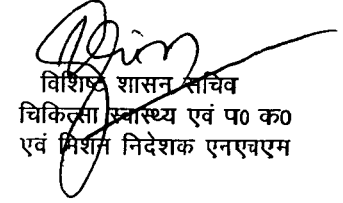 विशिष्ट शासन सचिव
चिकित्सा स्वास्थ्य एवं प0 क0
एवं मिशन निदेशक एनएचएम